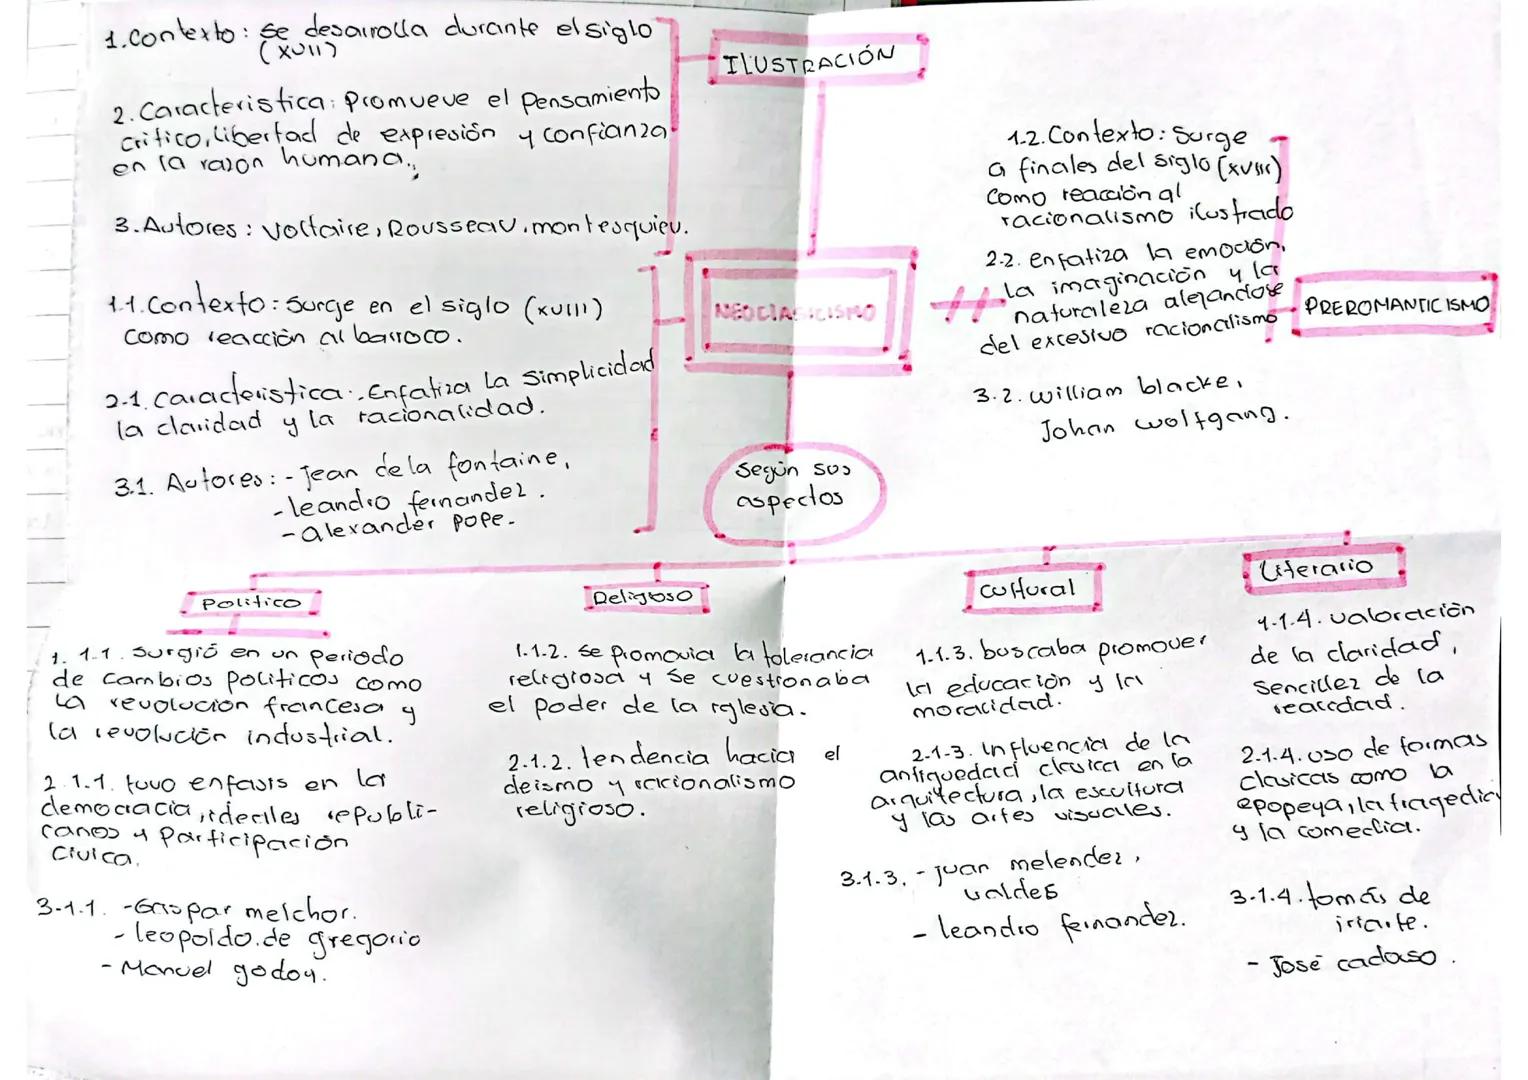 1.Contexto: Se desarrolla durante el siglo
(XVII)
2. Caracteristica: Promueve el Pensamiento
critico, libertad de expresión y confianza
en la razon humana.
3. Autores: Voltaire, Rousseau, montesquieu.
ILUSTRACIÓN
1.1. Contexto: Surge en el siglo (XVIII)
como reacción al barroco.
2.1. Caracteristica: Enfatiza La Simplicidad
la claridad y la racionalidad.
3.1. Autores: - Jean de la fontaine,
- leandro fernandez.
- alexander pope.
NEOCLASICISMO
1.2. Contexto: Surge
a finales del siglo (XVIII)
como reacción al
racionalismo ilustrado
2.2. enfatiza la emoción,
La imaginación y la
naturaleza alejandose
del excesivo racionalismo
3.2. william blacke,
Johan wolfgang.
PREROMANTICISMO
Según sus
aspectos
Politico
1.1.1. Surgió en un periodo
de cambios politicos como
la revolucion francesa y
la revolución industrial.
2.1.1. tuvo enfasis en la
democracia, ideales republi-
canos y Participación
civica.
3.1.1. - Gaspar melchor.
- leopoldo.de gregorio
- Manuel godoy.
Religioso
1.1.2. Se promovia la tolerancia
religiosa y se cuestionaba
el poder de la iglesia.
2.1.2. tendencia hacia el
deismo y racionalismo
religioso.
Cultural
1.1.3. buscaba promover
la educación y la
moralidad.
2.1.3. Influencia de la
antiguedad clasica en la
arquitectura, la escultura
y las artes visuales.
3.1.3. - juan melendez,
valdes
- leandro fernandez.
Literario
1.1.4. valoración
de la claridad,
Sencillez de la
realidad.
2.1.4. uso de formas
clasicas como la
epopeya, la tragedia
y la comedia.
3.1.4. tomás de
iriarte.
- José cadalso.